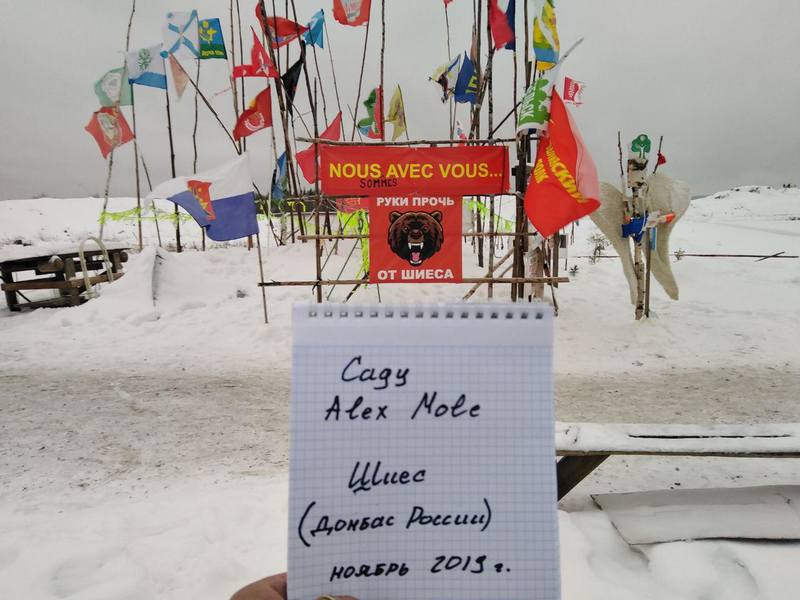 NOUS AVEC VOUS...
SOMMES
РУКИ ПРОЧЬ
ОТ ШИЕСА
Саду
Alex Mole
Шиес
(Донбас России)
ноябрь 2019 г.